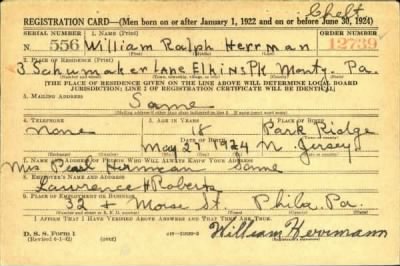 Chelt
REGISTRATION CARD—(Men born on or after January 1, 1922 and on or before June 30, 1924)
SERIAL NUMBER 1. NAME (Print) ORDER NUMBER
N 556 William Ralph Herrman 12739
2. PLACE OF RESIDENCE (Print)
3 Schumaker Lane Elkins Pk Montg. Pa.
(THE PLACE OF RESIDENCE GIVEN ON THE LINE ABOVE WILL DETERMINE LOCAL BOARD
JURISDICTION; LINE 2 OF REGISTRATION CERTIFICATE WILL BE IDENTICAL)
3. MAILING ADDRESS
Same
4. TELEPHONE 5. AGE IN YEARS 6. PLACE OF BIRTH
None 18 Park Ridge
DATE OF BIRTH
May 27 1924 N. Jersey
7. NAME AND ADDRESS OF PERSON WHO WILL ALWAYS KNOW YOUR ADDRESS
Mrs Pearl Herrman Same
8. EMPLOYER'S NAME AND ADDRESS
Lawrence H Roberts
9. PLACE OF EMPLOYMENT OR BUSINESS
32 + Morse St. Phila. Pa.
I AFFIRM THAT I HAVE VERIFIED ABOVE ANSWERS AND THAT THEY ARE TRUE.
D. S. S. Form 1
(Revised 6-1-42)
William Herrmann